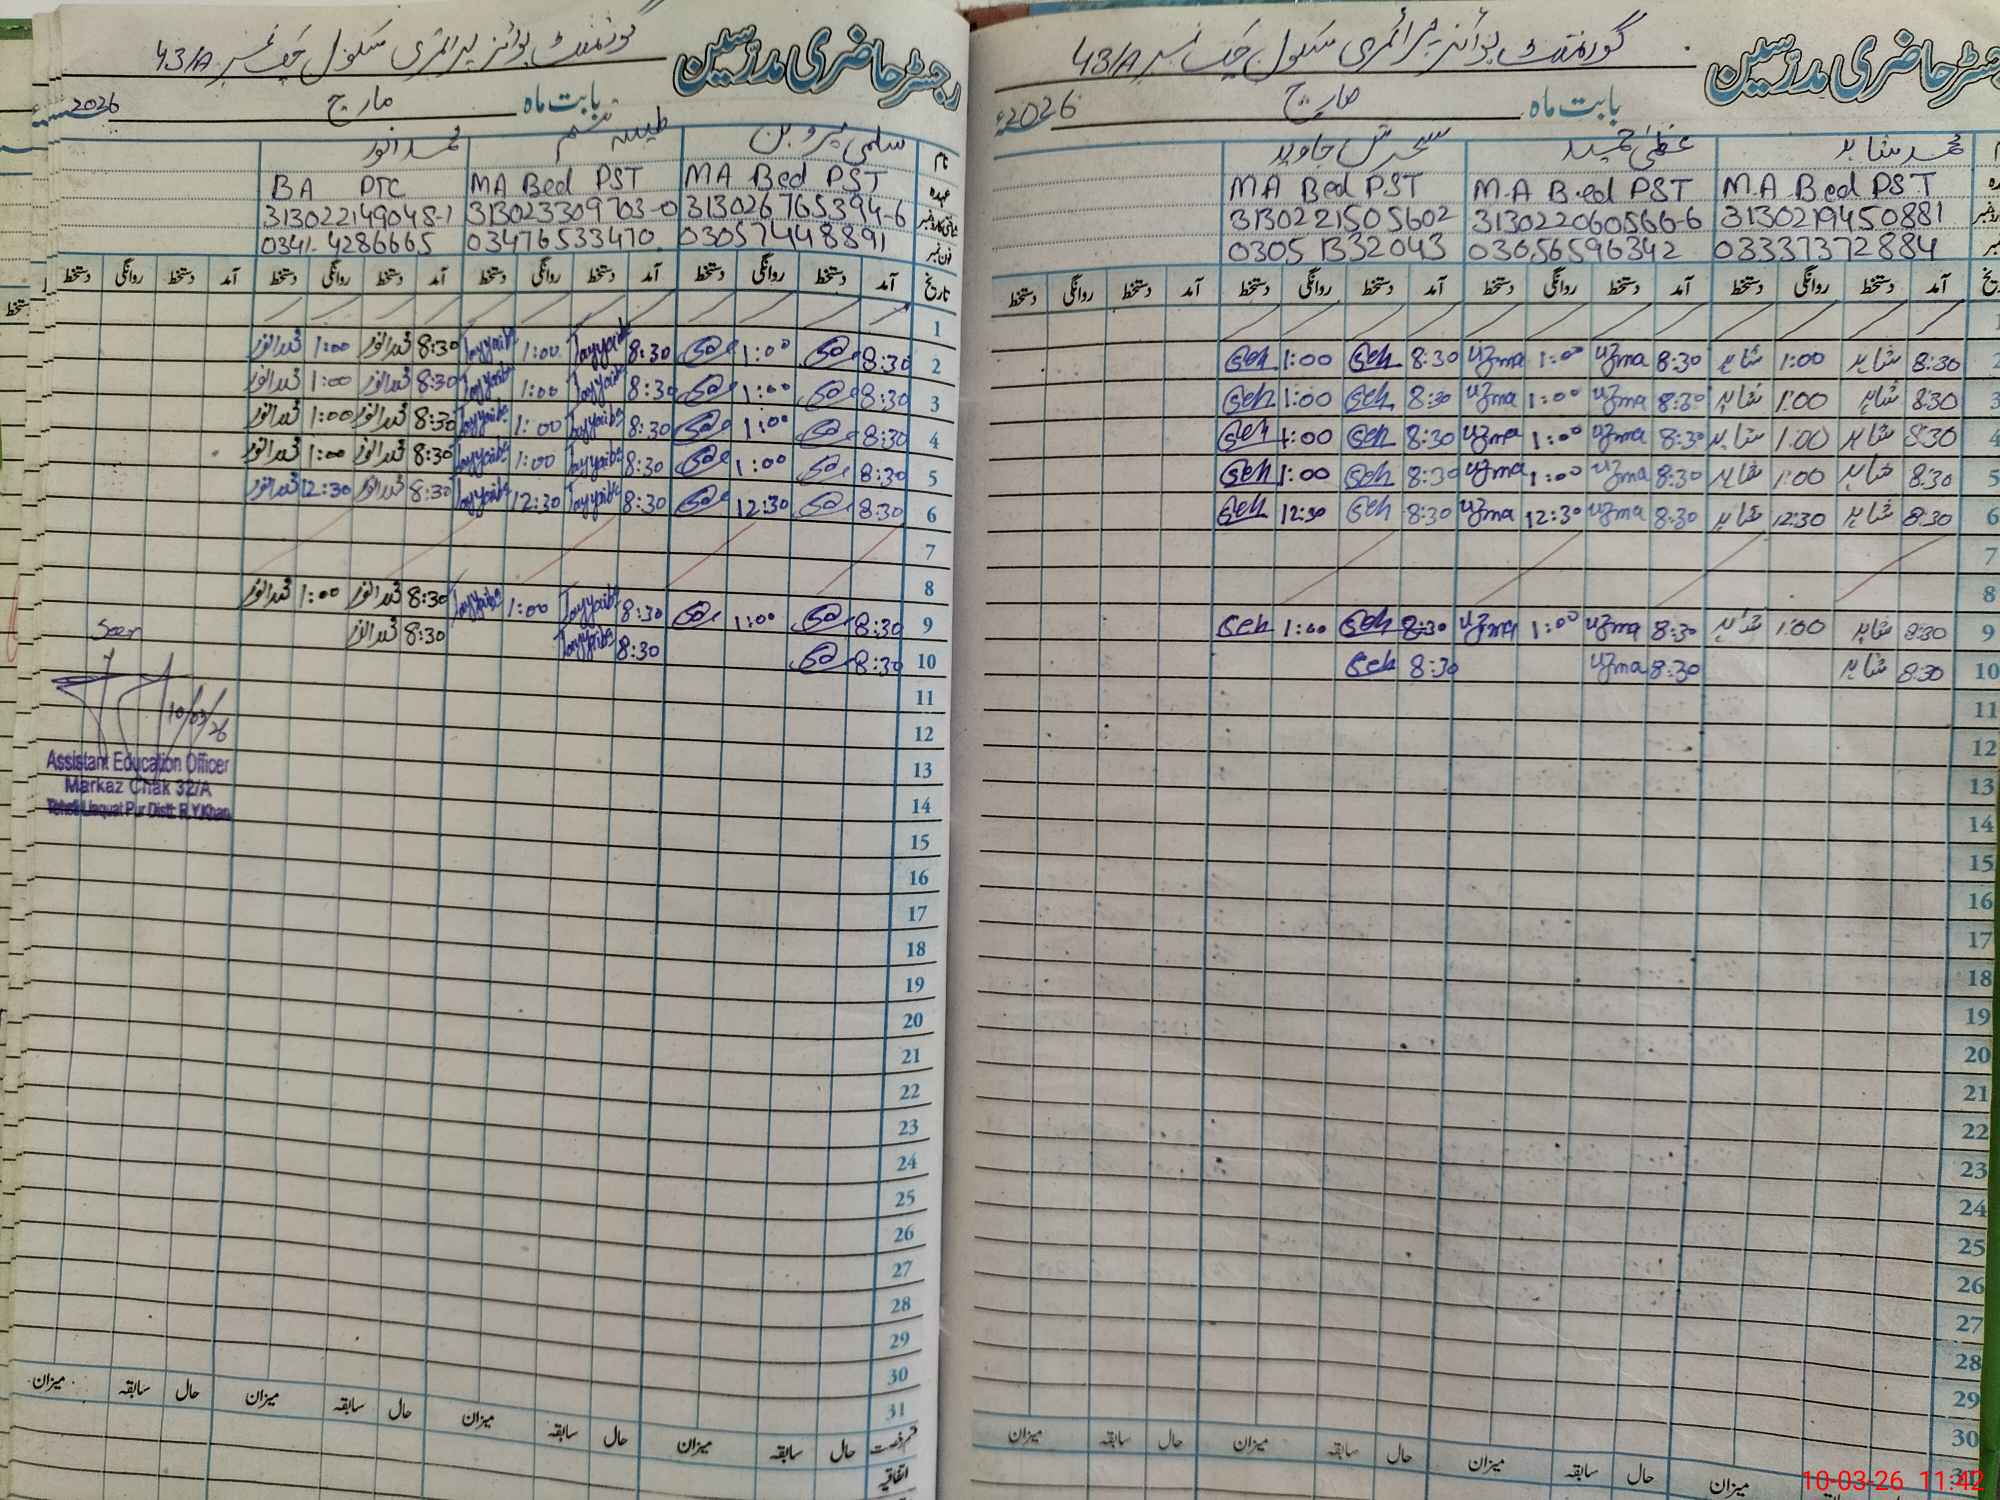 رجسٹر حاضری مدرسین گورنمنٹ بوائز پرائمری سکول چک نمبر 43/A
بابت ماہ مارچ 2026ء
نام محمد شاہد عظمیٰ حمید سحرش جاوید
عہدہ M.A Bed PST M.A B.ed PST MA Bed PST
3130219450881 313022060566-6 3130221505602
03337372884 03056596342 03051332043
تاریخ آمد دستخط روانگی دستخط آمد دستخط روانگی دستخط آمد دستخط روانگی دستخط آمد دستخط روانگی دستخط
1
2 8:30 شاہد 1:00 شاہد 8:30 Uzma 1:00 Uzma 8:30 Seh 1:00 Seh
3 8:30 شاہد 1:00 شاہد 8:30 Uzma 1:00 Uzma 8:30 Seh 1:00 Seh
4 8:30 شاہد 1:00 شاہد 8:30 Uzma 1:00 Uzma 8:30 Seh 1:00 Seh
5 8:30 شاہد 1:00 شاہد 8:30 Uzma 1:00 Uzma 8:30 Seh 1:00 Seh
6 8:30 شاہد 12:30 شاہد 8:30 Uzma 12:30 Uzma 8:30 Seh 12:30 Seh
7
8
9 8:30 شاہد 1:00 شاہد 8:30 Uzma 1:00 Uzma 8:30 Seh 1:00 Seh
10 8:30 شاہد 8:30 Uzma 8:30 Seh
11
12
13
14
15
16
17
18
19
20
21
22
23
24
25
26
27
28
29
30
31
میزان حال سابقہ میزان حال سابقہ میزان حال سابقہ میزان
10-03-26 11:42
رجسٹر حاضری مدرسین گورنمنٹ بوائز پرائمری سکول چک نمبر 43/A
بابت ماہ مارچ 2026ء
نام سلمیٰ پروین طیبہ محمد انور
عہدہ MA Bed PST MA Bed PST BA PTC
شناختی کارڈ نمبر 313026765394-6 313023309703-0 313022149048-1
فون نمبر 03057448891 03476533470 0341-4286665
تاریخ آمد دستخط روانگی دستخط آمد دستخط روانگی دستخط آمد دستخط روانگی دستخط آمد دستخط روانگی دستخط
1
2 8:30 1:00 8:30 Tayyaiba 1:00 Tayyaiba 8:30 محمد انور 1:00 محمد انور
3 8:30 1:00 8:30 Tayyaiba 1:00 Tayyaiba 8:30 محمد انور 1:00 محمد انور
4 8:30 1:00 8:30 Tayyaiba 1:00 Tayyaiba 8:30 محمد انور 1:00 محمد انور
5 8:30 1:00 8:30 Tayyaiba 1:00 Tayyaiba 8:30 محمد انور 1:00 محمد انور
6 8:30 12:30 8:30 Tayyaiba 12:30 Tayyaiba 8:30 محمد انور 12:30 محمد انور
7
8
9 8:30 1:00 8:30 Tayyaiba 1:00 Tayyaiba 8:30 محمد انور 1:00 محمد انور
10 8:30 8:30 Tayyaiba 8:30 محمد انور
11
12
13
14
15
16
17
18
19
20
21
22
23
24
25
26
27
28
29
30
31
Seen
10/03/26
Assistant Education Officer
Markaz Chak 32/A
Tehsil Liaquat Pur Distt: R.Y.Khan
قسم رخصت حال سابقہ میزان حال سابقہ میزان حال سابقہ میزان حال سابقہ میزان
اتفاقیہ